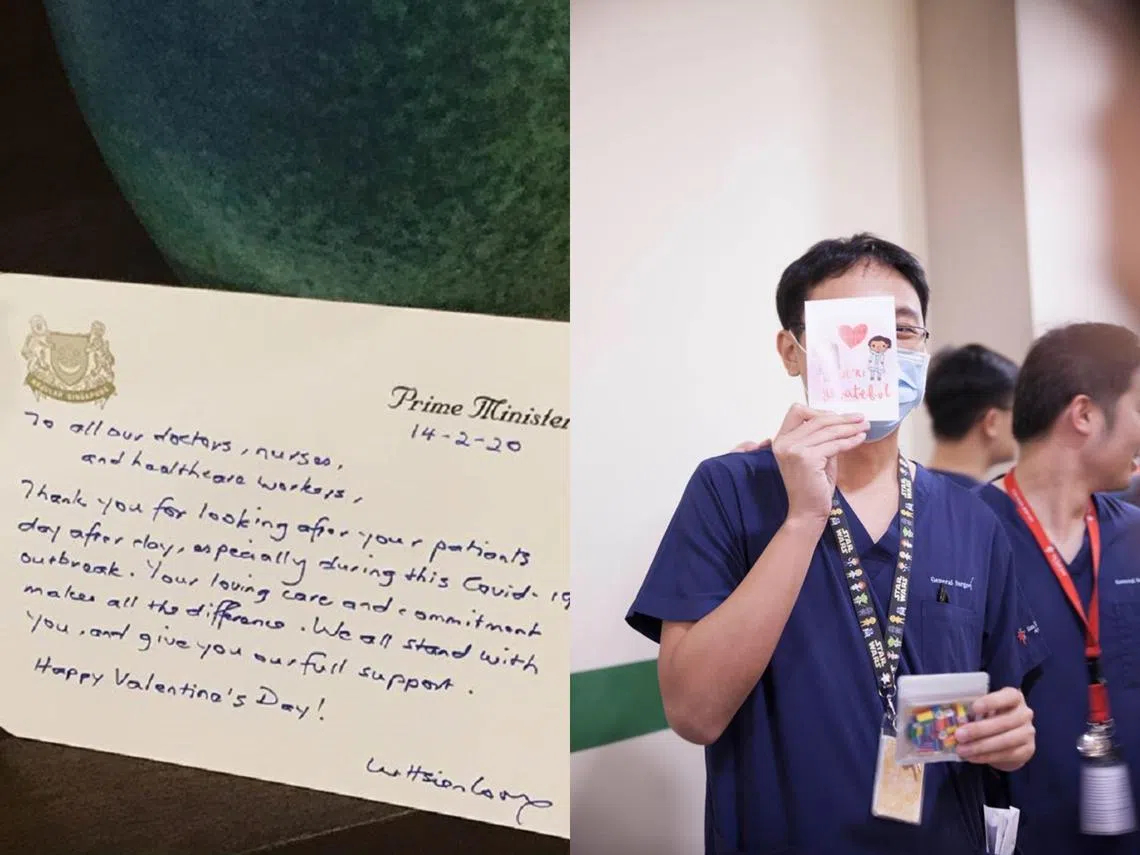 MAJULAH SINGAPURA
Prime Minister
14-2-20
To all our doctors, nurses,
and healthcare workers,
Thank you for looking after your patients
day after day, especially during this Covid-19
outbreak. Your loving care and commitment
makes all the difference. We all stand with
you, and give you our full support.
Happy Valentine's Day!
Lee Hsien Loong
grateful
STAR WARS
STAR WARS
STAR WARS
STAR WARS
General Surgery
General